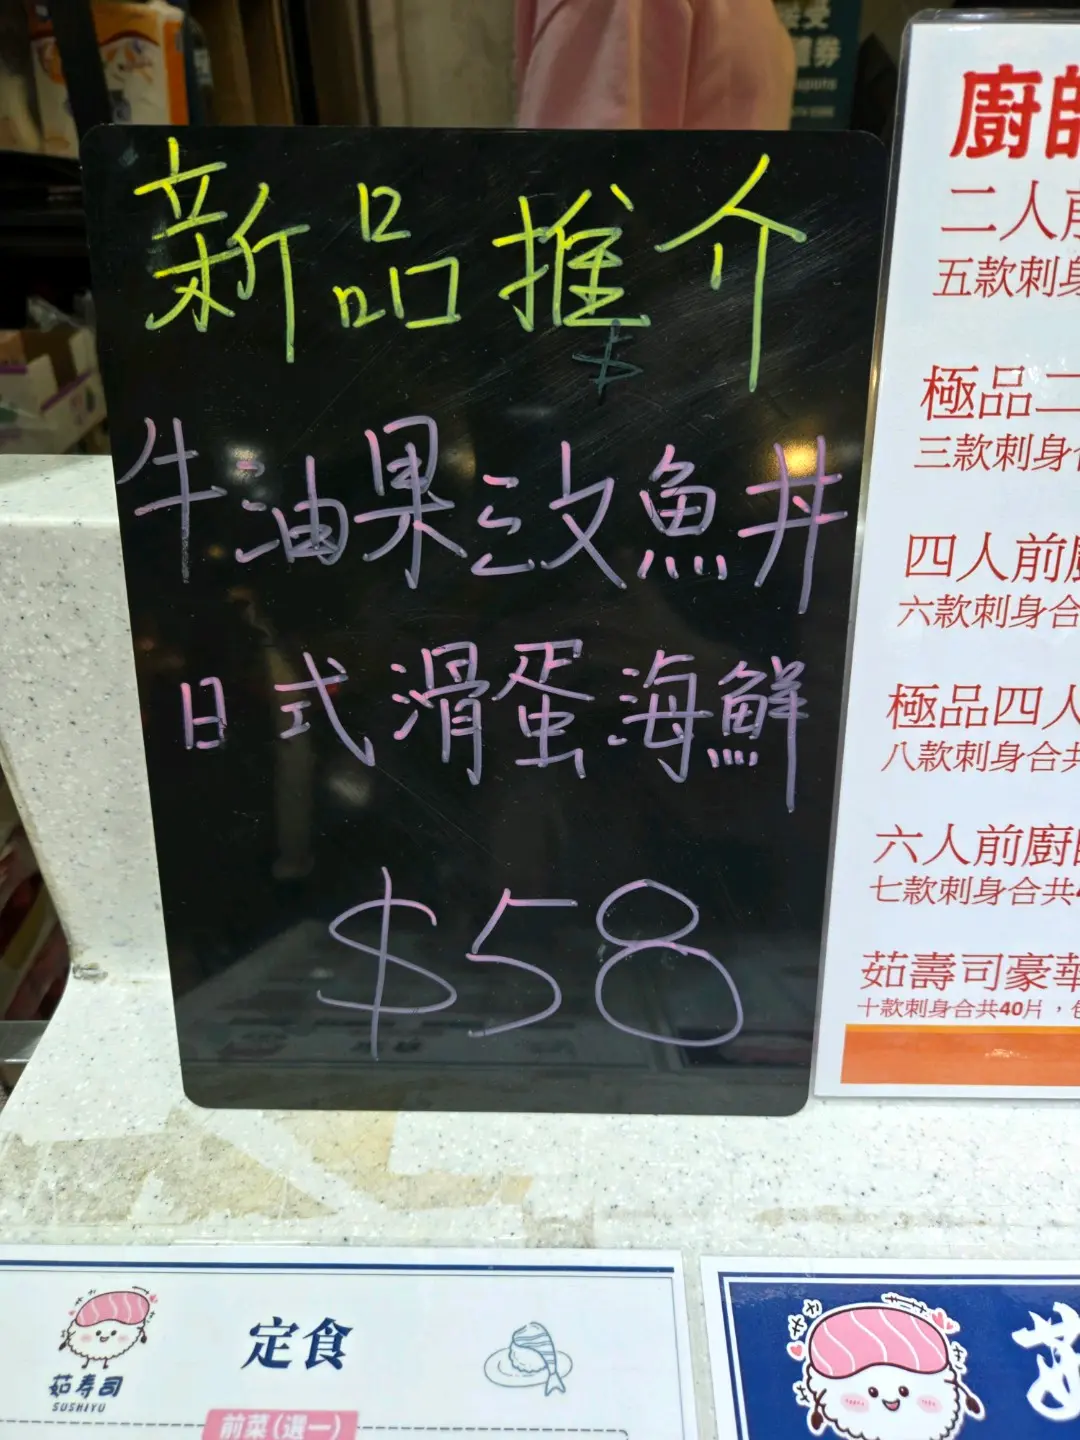 新品推介
$
牛油果三文魚丼
日式滑蛋海鮮
$58
廚師
二人前
五款刺身
極品二
三款刺身合
四人前廚
六款刺身合
極品四人
八款刺身合共
六人前廚師
七款刺身合共4
茹壽司豪華
十款刺身合共40片，包
定食
茹寿司
SUSHIYU
前菜(選一)
茹